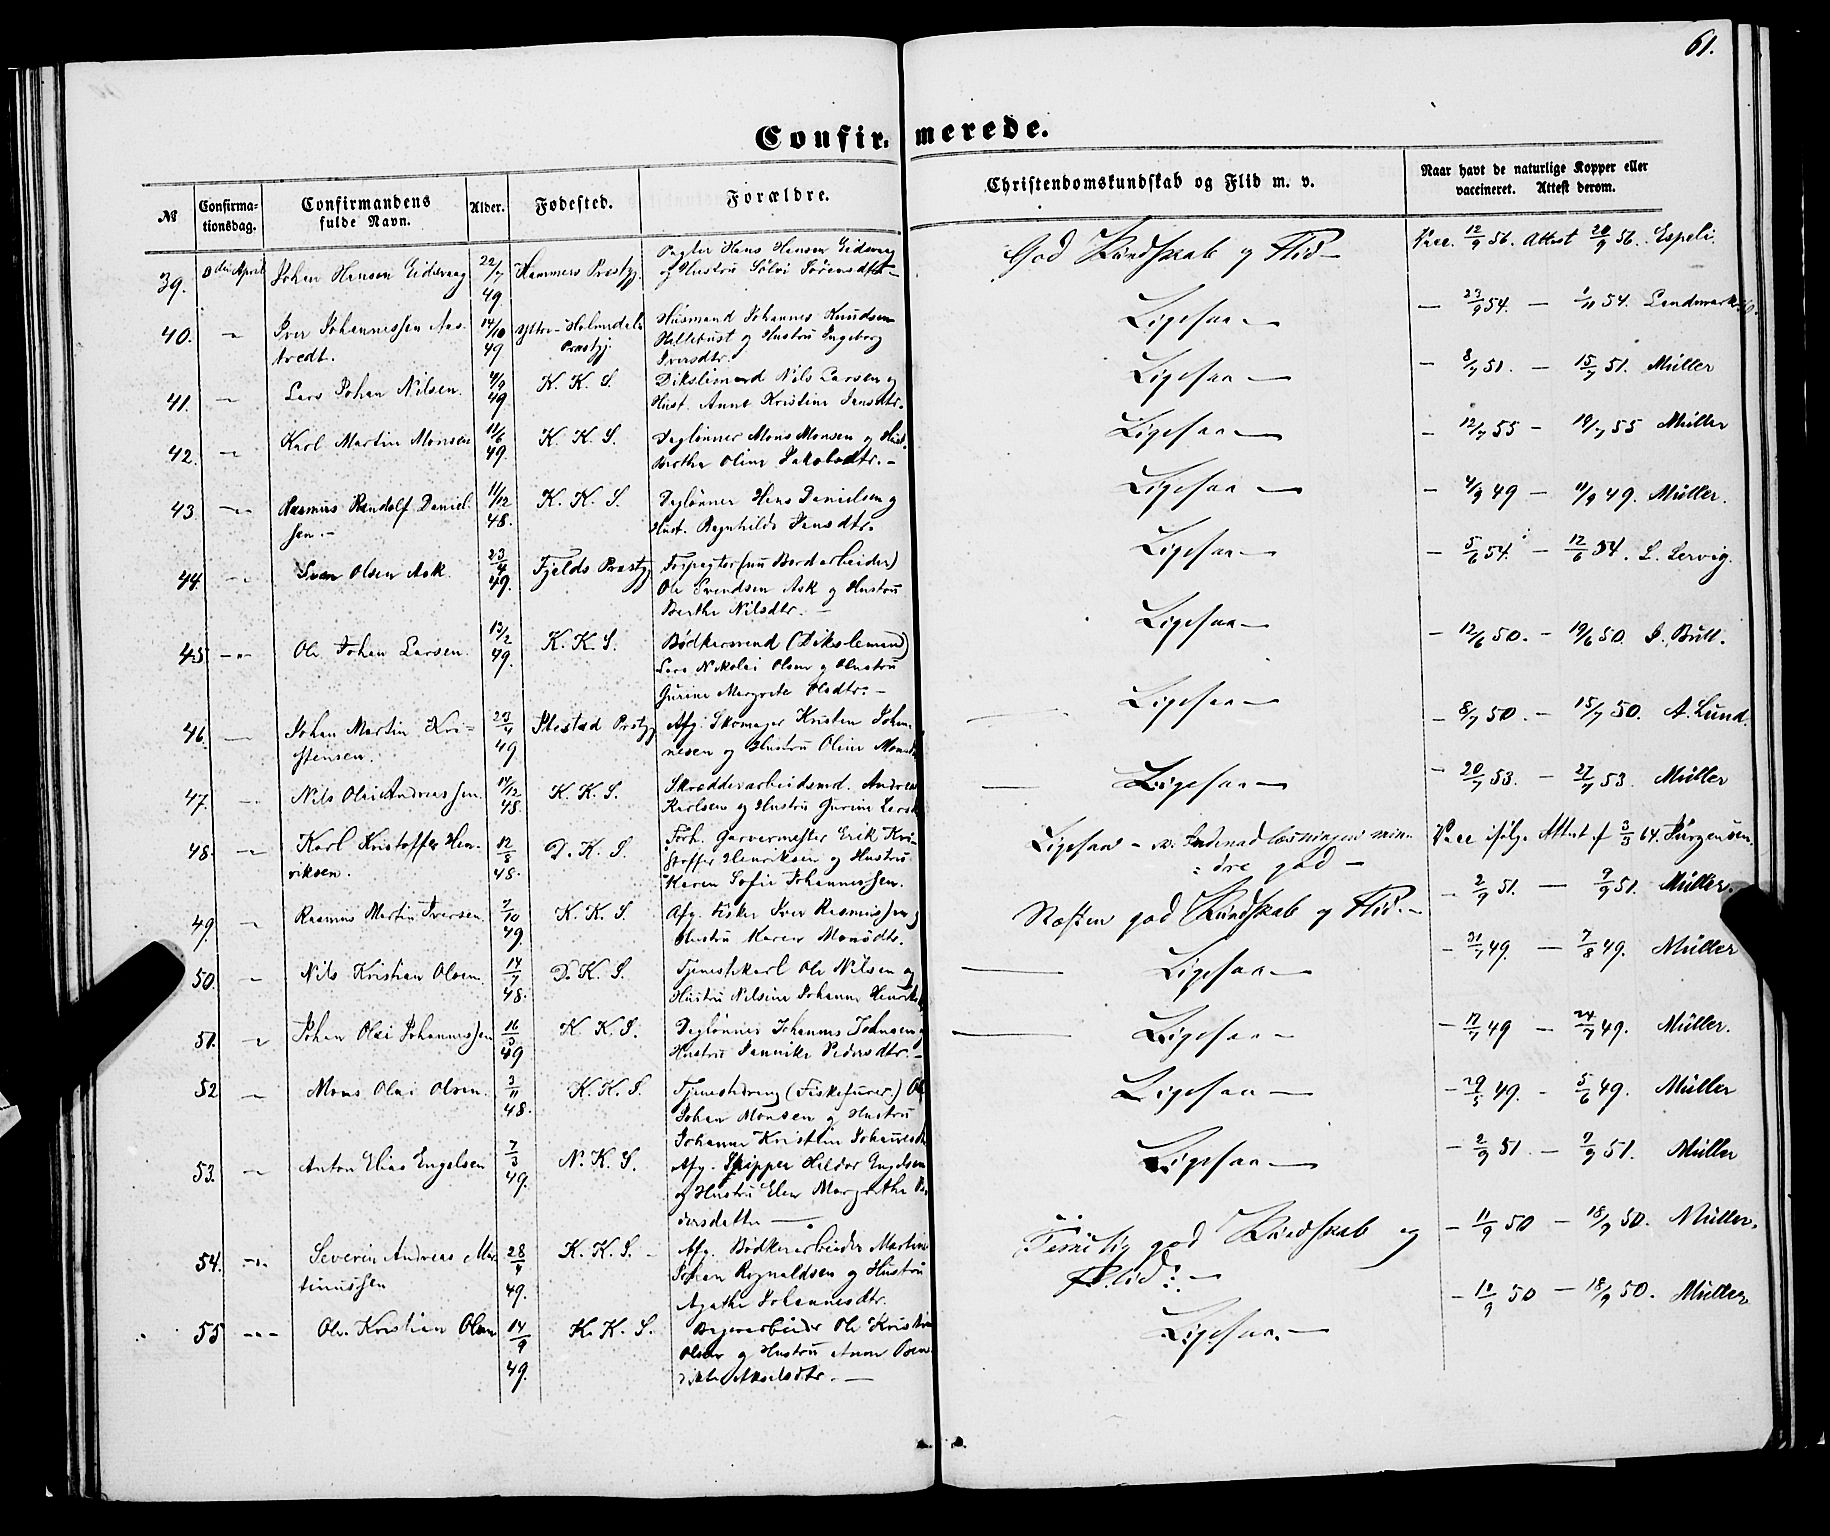 61.
Confirmerede.
№ Confirmationsdag. Confirmandens fulde Navn. Alder. Fødested. Forældre. Christendomskundskab og Flid m. v. Naar havt de naturlige Kopper eller vaccineret. Attest derom.
39. 3die April Johan Hansen Eidsvaag 22/7 49. Hammers Præstgj. Hans Hansen Eidsvaag
og Hustru Sølvi God Kundskab og Flid — Vacc. 12/9 56. Attest 20/9 56. Espeli.
40. —"— Iver Johannessen Aas- 14/10 49 Holmedals Husmand Johannes Knudsen
tvedt. Præstgj. Hilletust og Hustru Ingeborg
Iversdtr. Ligesaa — — 23/9 54. — 1/11 54. Landmark
41. —"— Lars Johan Nilsen. 4/9 49. K. K. S. Nils Larsen og
Hust. Anne Kristine Jensdtr. Ligesaa — — 8/7 51. — 15/7 51. Müller
42. —"— Karl Martin Monsen 11/6 49. K. K. S. Dagl̈ønner Mons Monsen og Hust.
Berthe Oline Jakobsdtr. — Ligesaa — — 12/7 55 — 19/7 55 Müller
43. —"— Rasmus Randolf Daniel- 11/12 48. K. K. S. Dagl̈ønner Hans Danielsen og
sen. — Hust. Ragnhilde Jensdtr. Ligesaa — — 4/9 49 — 11/9 49. Müller.
44. —"— Sven Olsen Ask. 23/4 49. Fjelds Præstgj. Forpagter (nu Bordarbeider)
Ole Svendsen Ask og Hustru
Berthe Nilsdtr. — Ligesaa — — 5/6 54. — 12/6 54. L. Lervig.
45 —"— Ole Johan Larsen. 13/2 49. K. K. S. Bødkersvend (Dikslemand)
Lars Nikolai Olsen og Hustru
Gurine Margrete Olsdtr. — Ligesaa — — 12/6 50. — 19/6 50. J. Bull.
46. — Johan Martin Kri- 23/4 49 Præstgj. Afg. Skomager Kristen Johan-
stensen. nesen og Hustru Oline Monsdtr. Ligesaa — — 8/7 50. — 15/7 50. A. Lund.
47. —"— Nils Olai Andreassen. 14/12 48. K. K. S. Skrædderarbeidsmd. Andreas
Karlsen og Hustru Gurine Larsdtr. Ligesaa — — 20/7 53. — 27/7 53. Müller
48. —"— Karl Kristoffer Hen- 12/8 48. D. K. S. Forh. Garvermester Erik Kri-
riksen. stoffer Henriksen og Hustru
Maren Sofie Johannessen. Ligesaa — Indenadlæsningen min-
dre god — Vacc ifølge Attest af 3/3 64. Jürgensen.
49. —"— Rasmus Martin Iversen. 7/10 49. K. K. S. Afg. Fisker Iver Rasmussen og
Hustru Maren Monsdtr. Næsten god Kundskab og Flid. — — 2/9 51. — 9/9 51. Müller.
50. —"— Nils Kristian Olsen. 14/7 48. D. K. S. Tjenestekarl Ole Nilsen og
Hustru Nilsine Johanne Ligesaa — — 31/7 49. — 7/8 49. Müller
51. —"— Johan Olai Johannessen 16/3 49 K. K. S. Dagl̈ønner Johannes Johnsen og
Hustru Jannike Pedersdtr. — Ligesaa — — 17/7 49 — 24/7 49. Müller.
52 —"— Mons Olai Olsen. 3/11 48. K. K. S. Tjenestedreng (Fiskefører.) Ole
Johan Monsen og Hustru
Johanne Kristine Ligesaa — — 29/5 49. — 5/6 49. Müller
53. —"— Anton Elias Engelsen 7/3 49. N. K. S. Afg. Skipper Haldor Engelsen
og Hustru Elen Margrethe Pe-
dersdatter — Ligesaa — — 2/9 51. — 9/9 51. Müller
54. —"— Severin Andreas Mar- 28/4 49. K. K. S. — Afg. Bødkerarbeider Martin
tinussen Johan Rognaldsen og Hustru
Agathe Johannesdtr. Temelig god Kundskab og
Flid. — — 11/9 50 — 18/9 50. Müller.
55 —"— Ole Kristian Olsen 14/9 49. K. K. S. Ole Kristian
Olsen og Hustru Anne Ben-
dikte Akselsdtr. — Ligesaa. — — 11/9 50 — 18/9 50. Müller